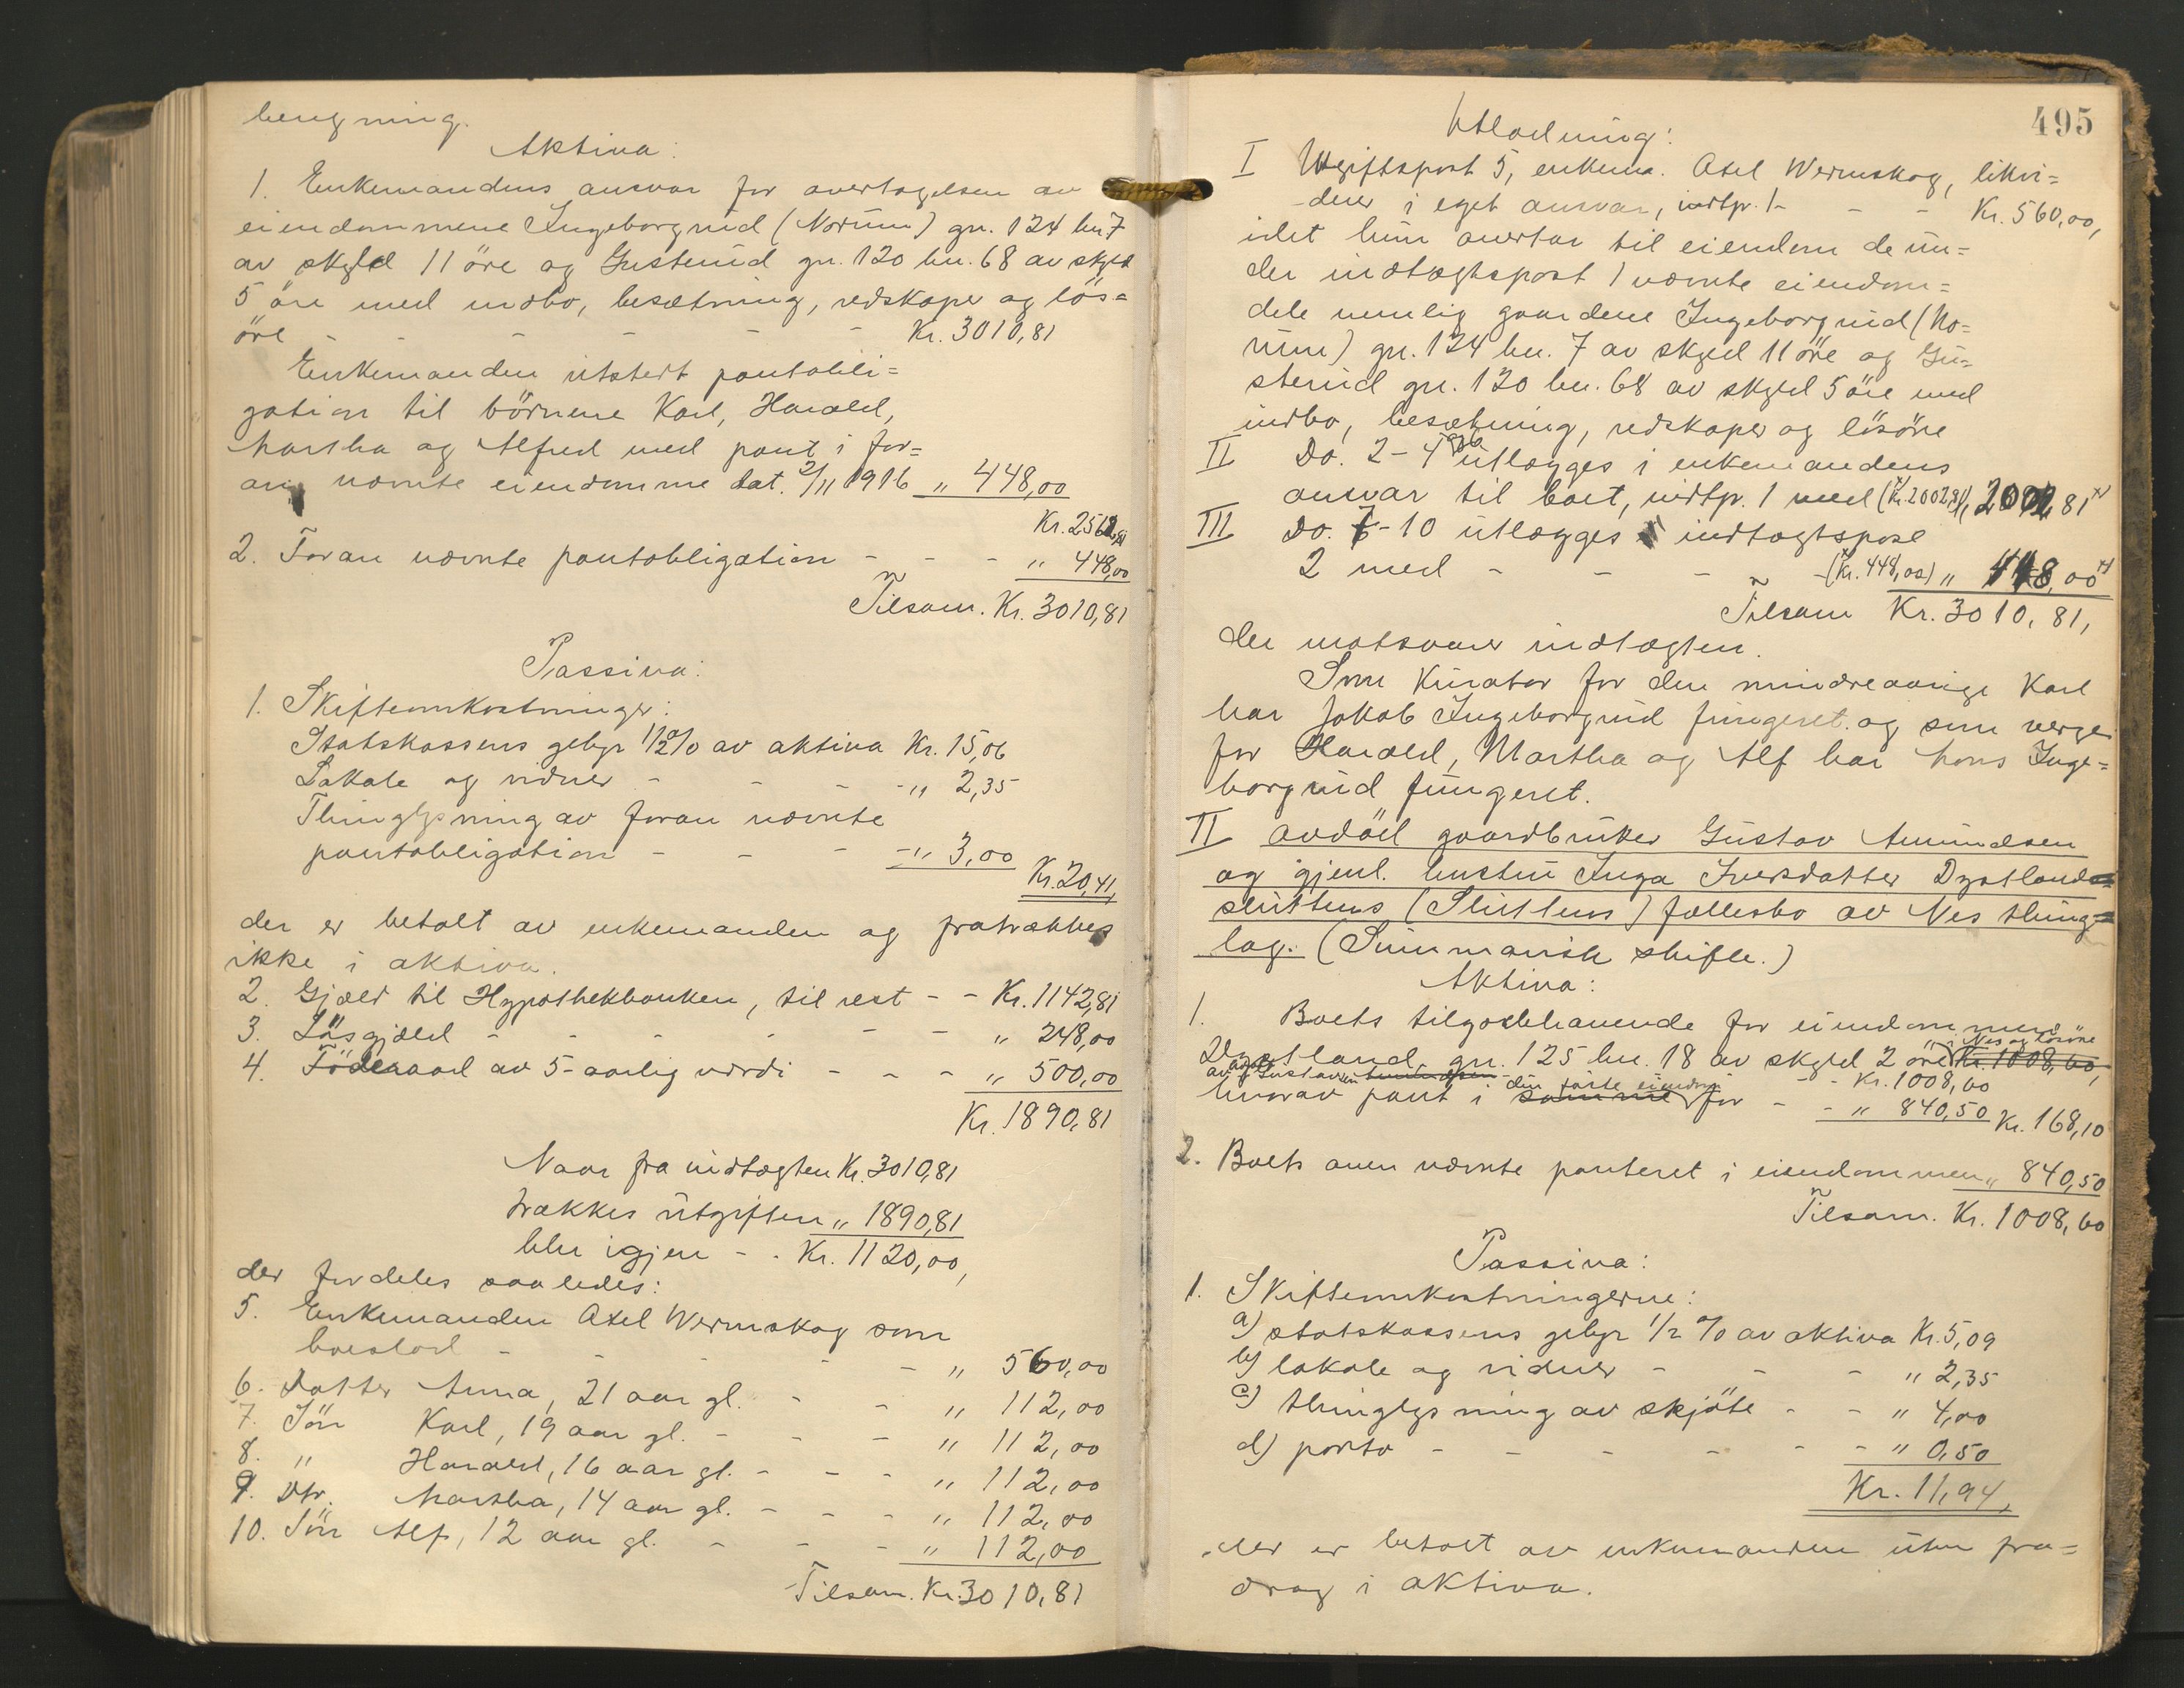 beregning.
Aktiva:
1. Enkemandens ansvar for overtagelsen av
eiendommene Ingeborgrud (Norum) gn. 124 bn 7
av skyld 11 öre og Gusterud gn. 120 bn. 68 av skyld
5 öre med indbo, besætning, redskaper og lös=
öre - - - - - Kr. 3010,81
Enkemanden utstedt pantobli=
gation til börnene Karl, Harald,
Martha og Alfred med pant i for=
an nævnte eiendomme dat. 2/11 1916 „ 448,00
Kr. 2562,81
2. Foran nævnte pantobligation - - - „ 448,00
Tilsam. Kr. 3010,81
Passiva:
1. Skifteomkostninger:
Statskassens gebyr 1/2 % av aktiva Kr. 15,06
Lokale og vidner - - - „ 2,35
Thinglysning av foran nævnte
pantobligation - - - „ 3,00
Kr. 20,41,
der er betalt av enkemanden og fratrækkes
ikke i aktiva.
2. Gjæld til Hypothekbanken, til rest - - Kr. 1142,81
3. Lösgjæld - - - - - „ 248,00
4. Föderaad av 5-aarlig værdi - - - „ 500,00
Kr. 1890,81
Naar fra indtægten Kr. 3010,81
trækkes utgiften „ 1890,81
blir igjen - - Kr. 1120,00,
der fordeles saaledes:
5. Enkemanden Axel Wermskog som
boeslod - - - - - „ 560,00
6. Datter Anna, 21 aar gl. - - „ 112,00
7. Sön Karl, 19 aar gl. - - - „ 112,00
8. „ Harald, 16 aar gl. - - - „ 112,00
9. Dtr. Martha, 14 aar gl. - - - „ 112,00
10. Sön Alf, 12 aar gl. - - - „ 112,00
Tilsam. Kr. 3010,81
495
Utlodning:
I Utgiftspost 5, enkema. Axel Wermskog, likvi=
derer i eget ansvar, indtp. 1 - - - Kr. 560,00,
idet han overtar til eiendom de un=
der indtægtspost 1 nævnte eiendom=
dele nemlig gaardene Ingeborgrud (No=
rum) gn. 124 bn. 7 av skyld 11 öre og Gu=
sterud gn. 120 bn. 68 av skyld 5 öre med
indbo, besætning, redskaper og lösöre
II Do. 2-4 og 6 utlægges i enkemandens
ansvar til boet, indtp. 1 med (Kr. 2002,81) „ 2002,81
III Do. 7-10 utlægges i indtægtspost
2 med - - - (Kr. 448,00) „ 448,00
Tilsam Kr. 3010,81,
der motsvarer indtægten.
Som kurator for den mindreaarige Karl
har Jakob Ingeborgrud fungeret og som verge
for Harald, Martha og Alf har Hans Inge=
borgrud fungeret.
II avdöd gaardbruker Gustav Amundsen
og gjenl. hustru Inga Iversdatter Dystland=
sluttens (Sluttens) fællesbo av Nes thing=
lag. (Summarisk skifte.)
Aktiva:
1. Boets tilgodehavende for eiendommen
Dystland gn. 125 bn. 18 av skyld 2 öre i Nes og lösöre Kr. 1008,60,
Kr. 1008,60
hvorav pant i samme for - - „ 840,50 Kr. 168,10
2. Boets oven nævnte panteret i eiendommen „ 840,50
Tilsam. Kr. 1008,60
Passiva:
1. Skifteomkostningerne:
a) statskassens gebyr 1/2 % av aktiva Kr. 5,09
b) lokale og vidner - - - „ 2,35
c) thinglysning av skjöte - - „ 4,00
d) porto - - - - - - „ 0,50
Kr. 11,94,
der er betalt av enkemanden uten fra=
drag i aktiva.